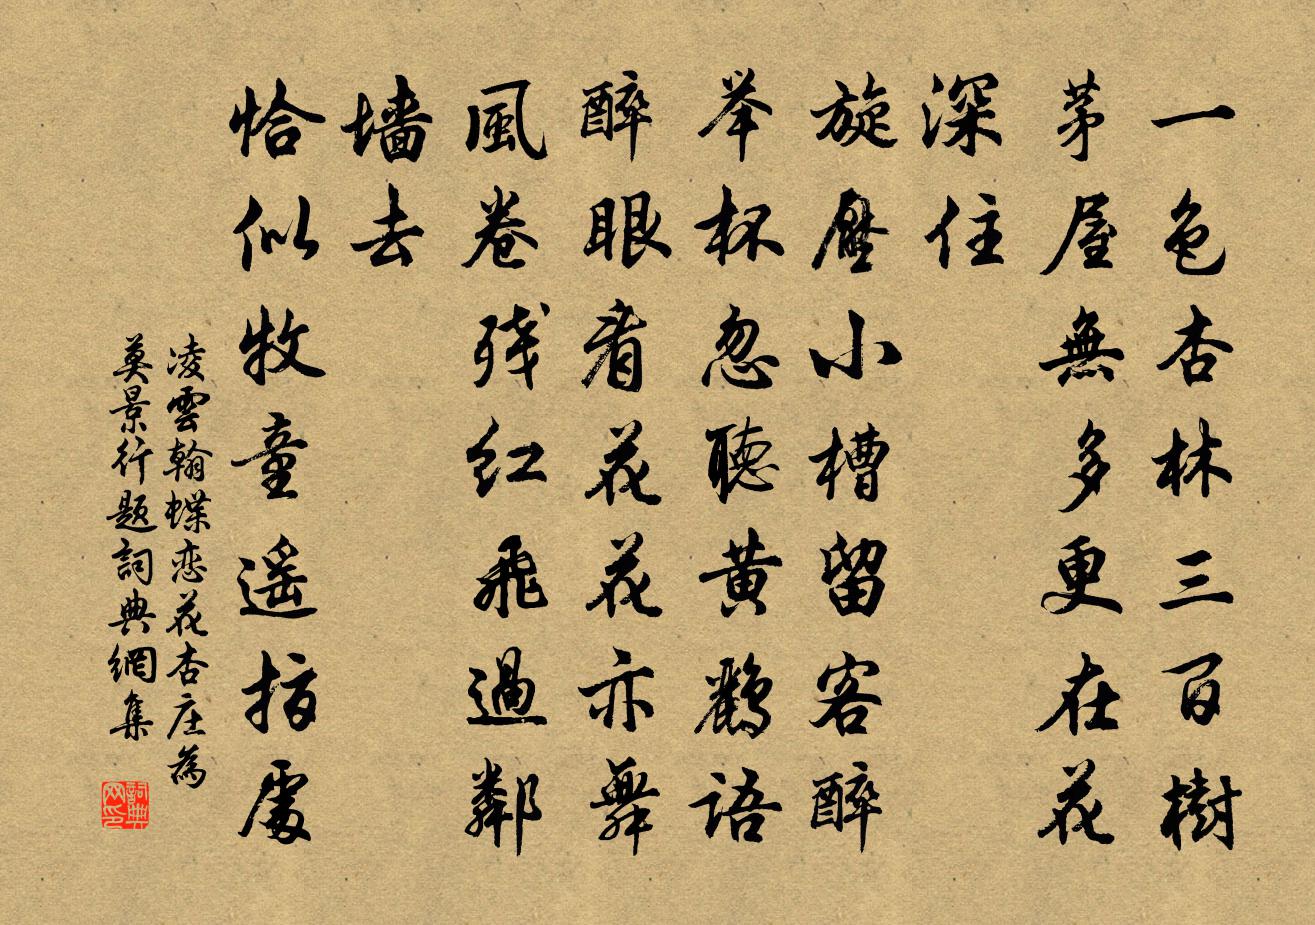 一色杏林三百樹
茅屋無多更在花
深住
旋壓小槽留客醉
举杯忽聽黄鸝語
醉眼看花花亦舞
風卷残红飛過鄰
墙去
恰似牧童遥指處
凌雲翰蝶恋花杏庄為
莫景行题詞典網集
詞典网印